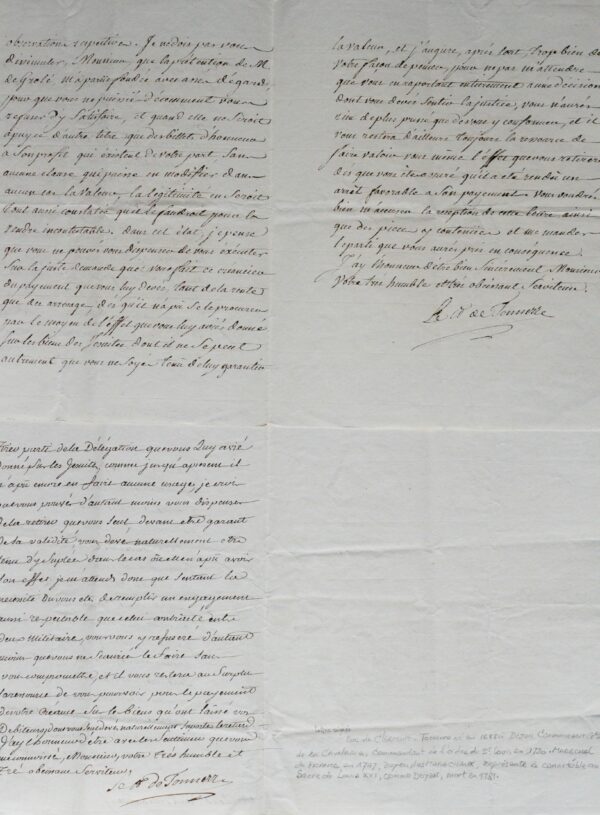 observations respectives. Je ne dois pas vous
dissimuler, Monsieur, que la prétention de M.
m'a parû fondée à
pour que vous ne puissiés décemment vous
refuser d'y Satisfaire, et quand elle ne Seroit
apuyée d'autre titre que des billets d'honneur
a Son profit qui existent de votre part, Sans
aucune clause qui puisse en modifier dans
aucun cas la valeur, la légitimité en Seroit
tout aussi constatée qu'il le faudroit pour la
rendre incontestable. dans cet état, je pense
que vous ne pouvés vous dispenser de vous exécuter
Sur la juste demande que vous fait ce creancier
du payement que vous luy devés, tant de la rente
que des arrerages, dès qu'il n'a pû Se le procurer
par le moyen de l'effet que vous luy aviés donné
Sur les biens des Jesuites dont il ne Se peut
autrement que vous ne Soyés tenû de luy garantir
la valeur, et j'augure, après tout, trop bien de
votre façon de penser, pour ne pas m'attendre
que vous en raportant entierement a une décision
dont vous devés Sentir la justice, vous n'aurés
rien de plus pressé que de vous y conformer, et il
vous restera d'ailleurs toujours la ressource de
faire valoir vous même l'effet que vous retirerés
dès que vous etes assuré qu'il a eté rendû un
arrêt favorable a Son payement. Vous voudrés
bien m'accuser la réception de cette lettre ainsi
que des pieces y contenües et me mander
le parti que vous aurés pris en conséquence.
J'ay l'honneur d'être bien Sincerement Monsieur
Votre très humble et très obéissant Serviteur.
Le Mal de Tonnerre
tirer parti de la Délégation que vous Luy avié
donné Sur les Jesuites, comme jusqu'apresent il
n'a pû encore en faire aucune usage, je crois
que vous pouvés d'autant moins vous dispenser
de la retirer que vous Seul devant etre garant
de la validité, vous devés naturellement etre
tenu d'y Suplée dans le cas ou elle n'a pu avoir
Son effet, je m'atends donc que Sentant la
necessité ou vous etes de remplir un engagement
aussi respectable que celui contracté entre
deux Militaire, vous vous y refuseré d'autant
moins que vous ne Sauriés le faire Sans
vous compromettre, et il vous restera au Surplus
la ressource de vous pourvoir pour le payement
de votre Créance Sur les biens qu'ont laissé vos
Debiteurs
J'ay l'honneur d'être avec les Sentimens que vous
me connoissés, Monsieur, votre très humble et
tré obeissant Serviteur,
le Mal de Tonnerre
de Clermont - Tonnerre né en 1688 à Dijon Commandant
de la Cavalerie, Commandeur de l'ordre de St Louis, en 1730 Maréchal
de France, en 1747, doyen des maréchaux, représente le connétable au
Sacre de Louis XVI, comme Doyen, mort en 1781.